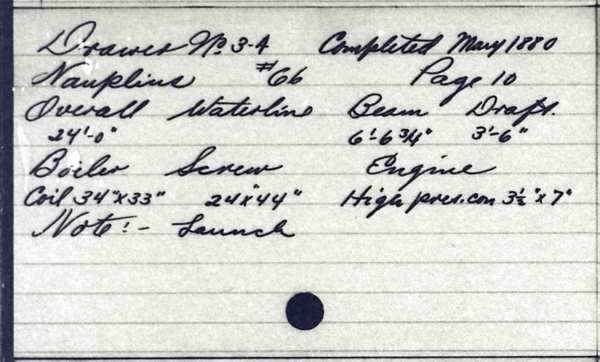 Drawer No. 3-A Completed May 1880
Nauplius #66 Page 10
Overall Waterline Beam Draft.
24'-0" 6'-6 3/4" 3'-6"
Boiler Screw Engine
Coil 34"x33" 24"x44" High pres. con 3½"x7"
Note:- Launch